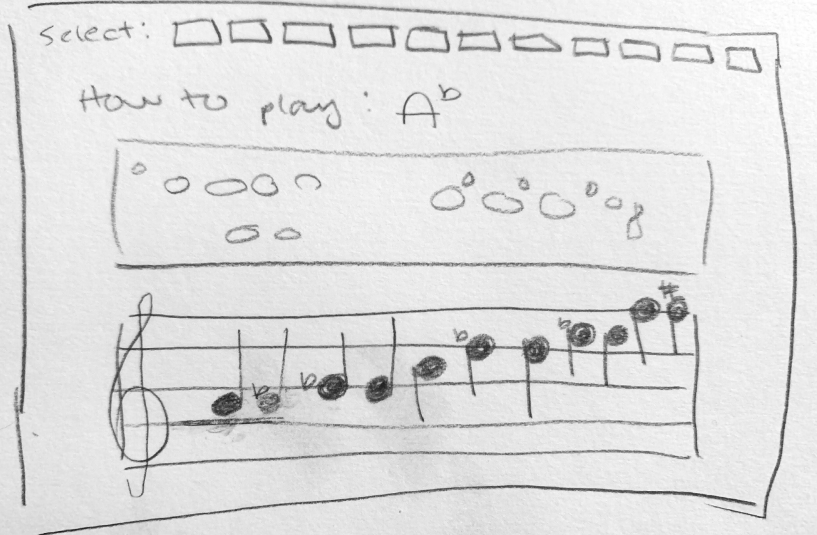 Select:
How to play: A♭